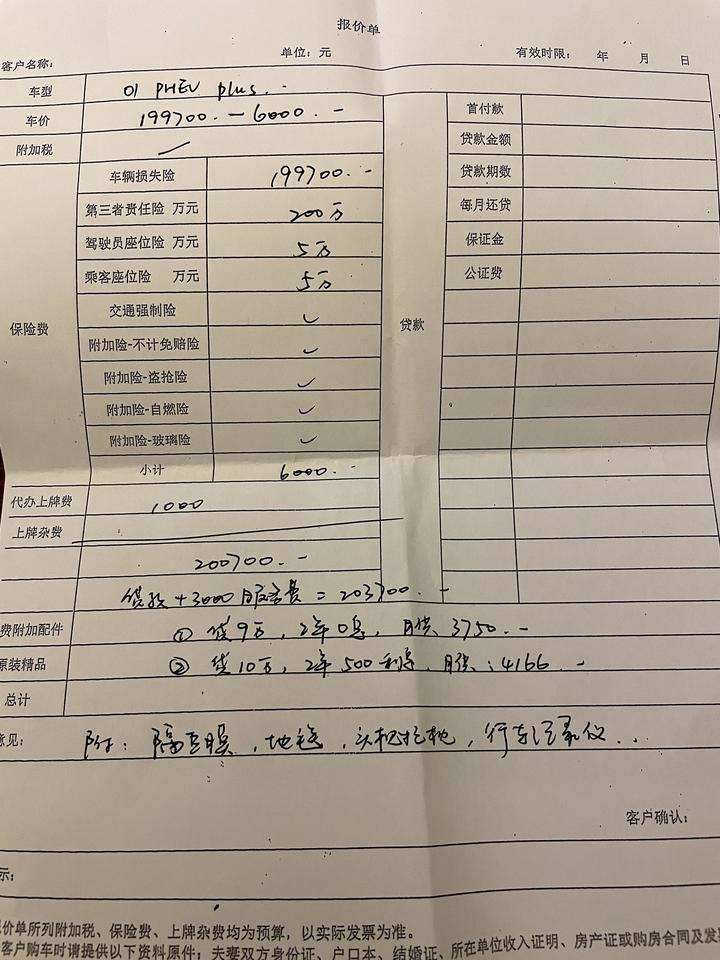 报价单
客户名称： 单位：元 有效时限： 年 月 日
车型 01 PHEV plus.-
车价 199700.- -6000.- 首付款
附加税 贷款金额
车辆损失险 199700.- 贷款期数
第三者责任险 万元 200万 每月还贷
驾驶员座位险 万元 5万 保证金
乘客座位险 万元 5万 公证费
交通强制险 ✓
保险费 贷款
附加险-不计免赔险 ✓
附加险-盗抢险 ✓
附加险-自燃险 ✓
附加险-玻璃险 ✓
小计 6000.-
代办上牌费 1000
上牌杂费
200700.-
贷款+3000服务费=203700.-
费附加配件 ① 贷9万，2年0息，月供3750.-
原装精品 ② 贷10万，2年500利息，月供：4166.-
总计
意见： 附：隔热膜，地毯，头枕抱枕，行车记录仪...
客户确认：
示：
价单所列附加税、保险费、上牌杂费均为预算，以实际发票为准。
客户购车时请提供以下资料原件：夫妻双方身份证、户口本、结婚证、所在单位收入证明、房产证或购房合同及发